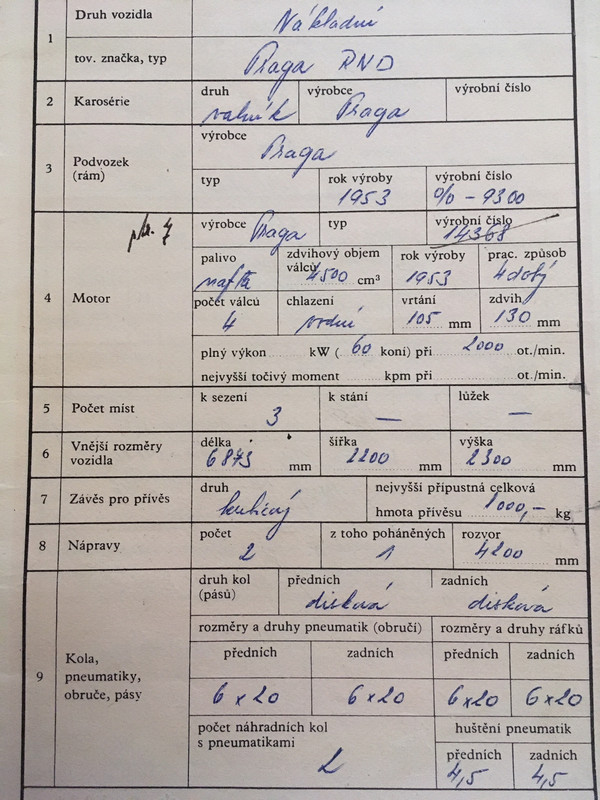 1 Druh vozidla Nákladní
tov. značka, typ Praga RND
2 Karosérie druh valník výrobce Praga výrobní číslo
3 Podvozek (rám) výrobce Praga
typ rok výroby 1953 výrobní číslo % - 9300
4 Motor výrobce Praga typ výrobní číslo 14368
palivo nafta zdvihový objem válců 4500 cm³ rok výroby 1953 prac. způsob 4dobý
počet válců 4 chlazení vodní vrtání 105 mm zdvih 130 mm
plný výkon kW ( 60 koní) při 2000 ot./min.
nejvyšší točivý moment kpm při ot./min.
5 Počet míst k sezení 3 k stání — lůžek —
6 Vnější rozměry vozidla délka 6873 mm šířka 2200 mm výška 2300 mm
7 Závěs pro přívěs druh nejvyšší přípustná celková hmota přívěsu 1000,- kg
8 Nápravy počet 2 z toho poháněných 1 rozvor 4200 mm
9 Kola, pneumatiky, obruče, pásy
druh kol (pásů) předních disková zadních disková
rozměry a druhy pneumatik (obručí) rozměry a druhy ráfků
předních zadních předních zadních
6 x 20 6 x 20 6 x 20 6 x 20
počet náhradních kol s pneumatikami 2 huštění pneumatik
předních 4,5 zadních 4,5